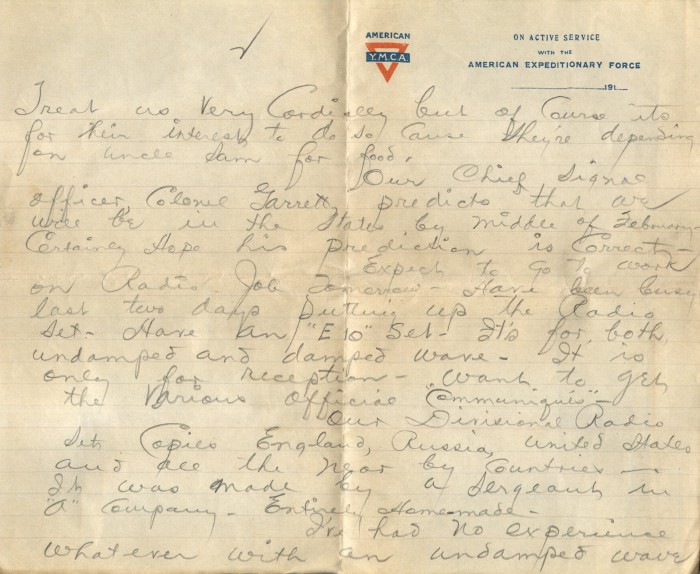 AMERICAN
Y.M.C.A.
ON ACTIVE SERVICE
WITH THE
AMERICAN EXPEDITIONARY FORCE
191
Treat us Very Cordially but of Course its
for their interest to do so cause they're depending
on uncle Sam for food.
Our Chief Signal
officer, Colonel Garrett, predicts that we
will be in the States by middle of February-
Certainly Hope his prediction is Correct-
Expect to go to work
on Radio Job tomorrow- Have been busy
last two days putting up the Radio
Set- Have an "E 10" Set- It's for both
undamped and damped wave- It is
only for reception- want to get
the Various Official "Communiques"-
Our Divisional Radio
Set Copies England, Russia, United States
and all the near by Countries-
It was made by a Sergeant in
"A" Company- Entirely Home-made-
I've had no experience
whatever with an undamped wave